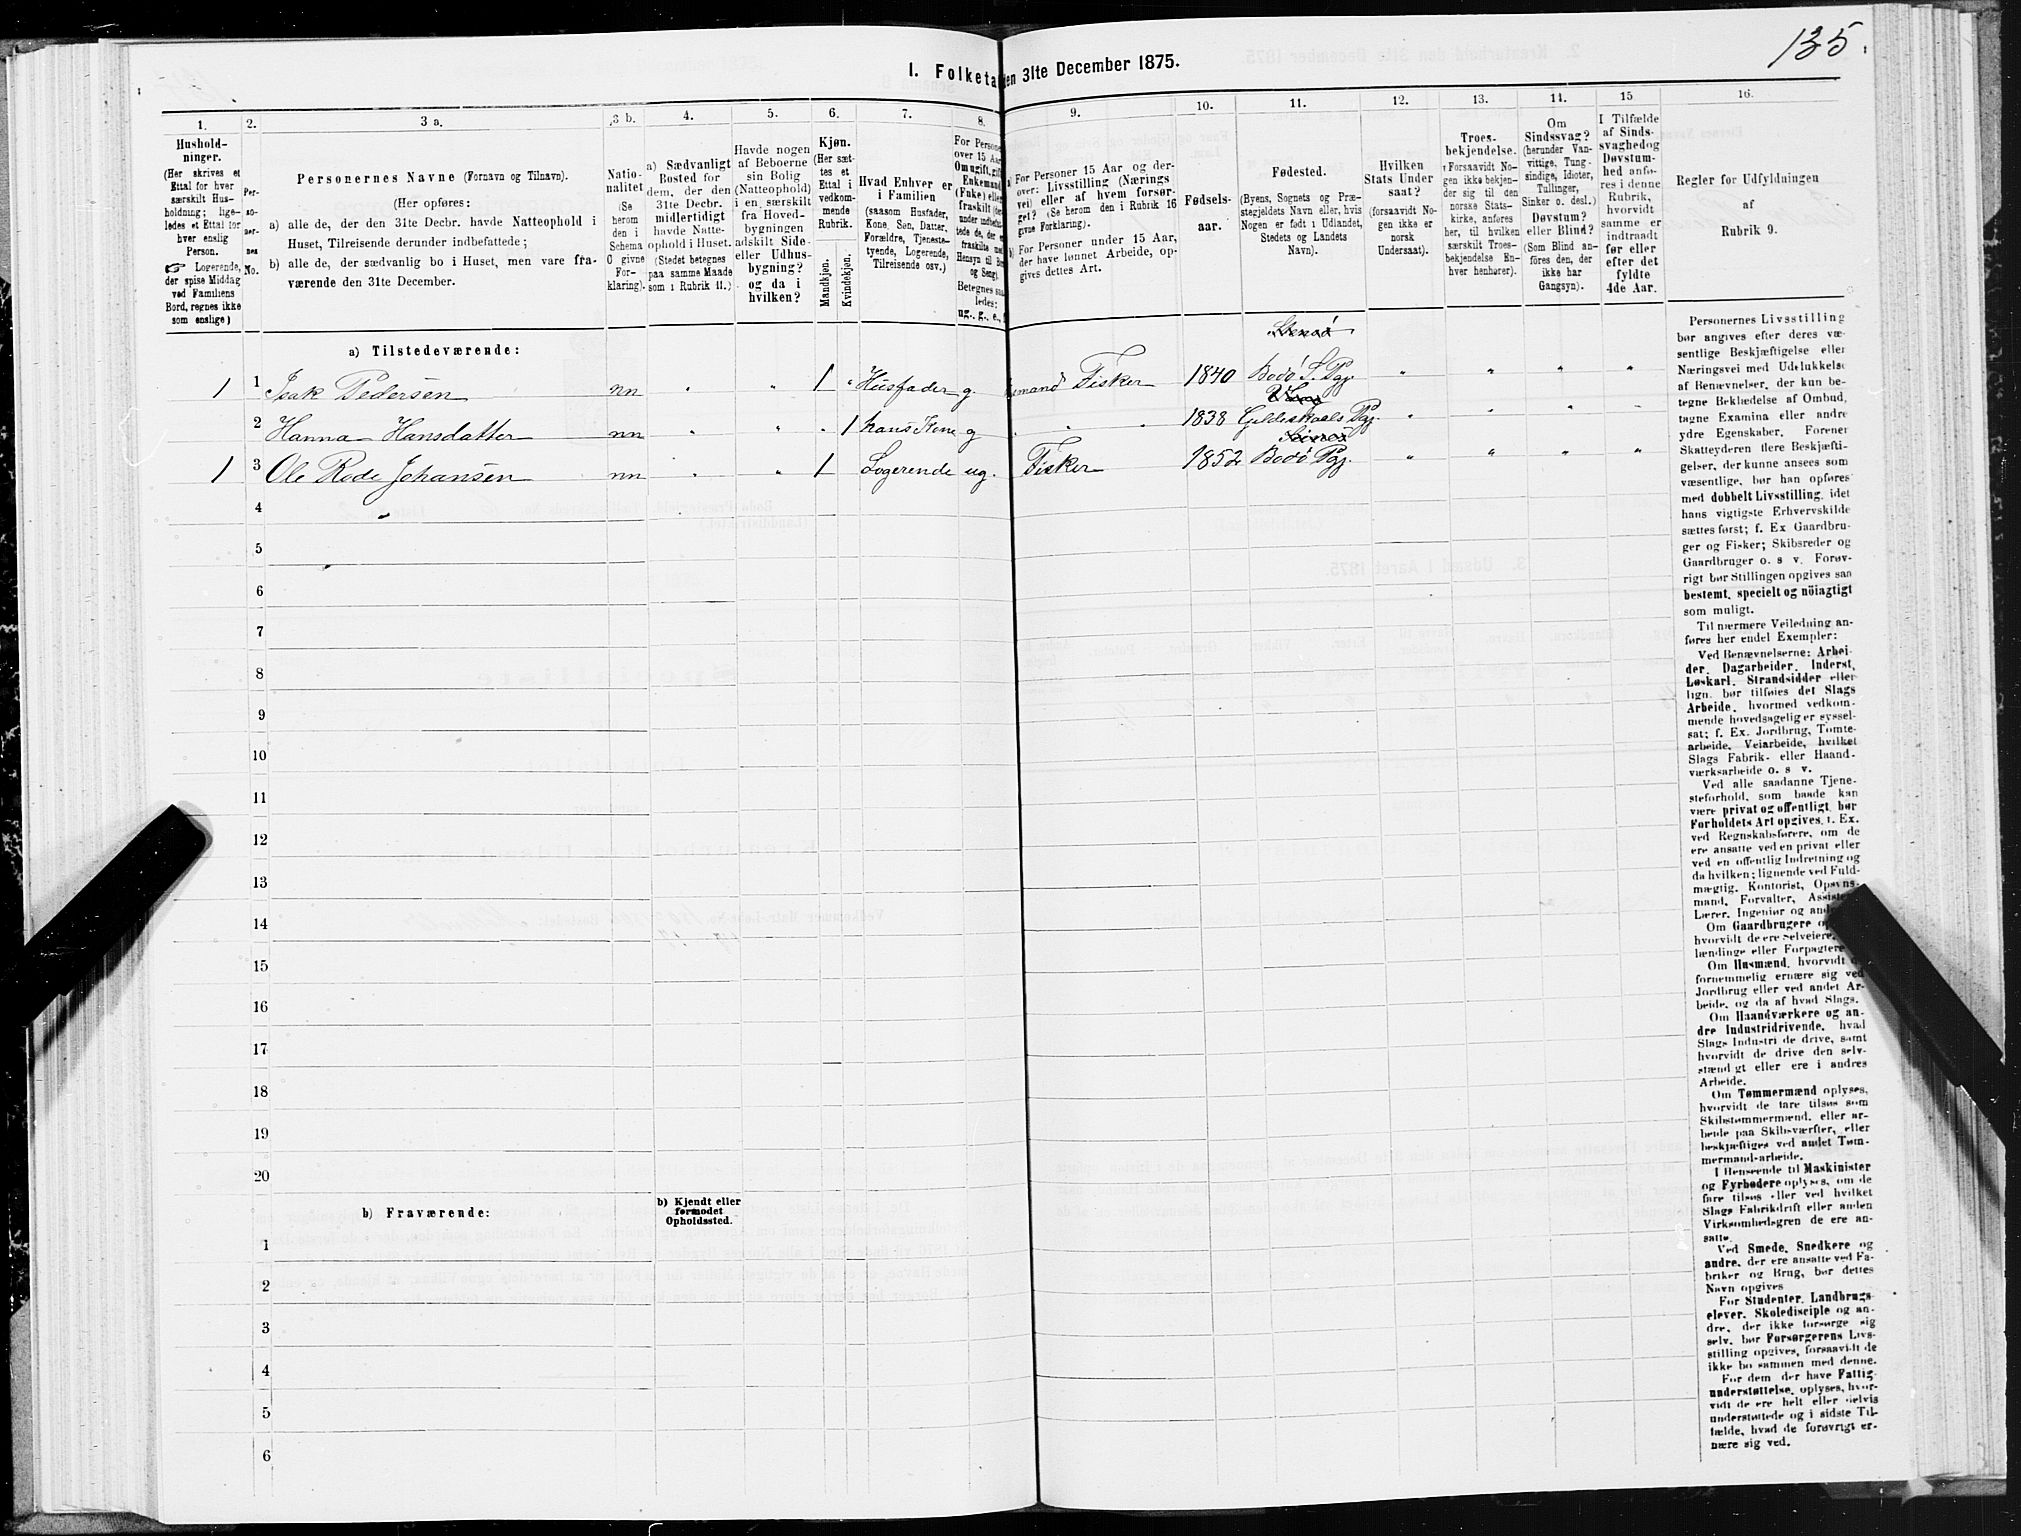 135.
I. Folketa
den 31te December 1875.
1. 2. 3 a. 3 b. 4. 5. 6. 7. 8. 9. 10. 11. 12. 13. 14. 15 16.
Hushold-
ninger.
(Her skrives et
Ettal for hver
særskilt Hus-
holdning; lige-
ledes et Ettal for
hver enslig
Person.
☞ Logerende,
der spise Middag
ved Familiens
Bord, regnes ikke
som enslige)
Per-
so-
ner-
nes
No.
Personernes Navne (Fornavn og Tilnavn).
(Her opføres:
a) alle de, der den 31te Decbr. havde Natteophold i
Huset, Tilreisende derunder indbefattede;
b) alle de, der sædvanlig bo i Huset, men vare fra-
værende den 31te December.
Natio-
nalitet
(Se
herom
den i
Schema
O givne
For-
klaring).
a) Sædvanligt
Bosted for
dem, der den
31te Decbr.
midlertidigt
havde Natte-
ophold i Huset.
(Stedet betegnes
paa samme Maade
som i Rubrik 11.)
Havde nogen
af Beboerne
sin Bolig
(Natteophold)
i en særskilt
fra Hoved-
bygningen
adskilt Side-
eller Udhus-
bygning?
og da i
hvilken?
Kjøn.
(Her sæt-
tes et
Ettal i
vedkom-
mende
Rubrik.
Mandkjøn.
Kvindekjøn.
Hvad Enhver er
i Familien
(saasom Husfader,
Kone, Søn, Datter,
Forældre, Tjeneste-
tyende, Logerende,
Tilreisende osv.)
For Persone
over 15 Aar
Om ugift, gift
Enkemand
(Enke) eller
fraskilt
under indbefat-
tede de, der
fraskilte med
Hensyn til Bord
og Seng).
Betegnes saa-
ledes:
ug., g., e.,
a) For Personer 15 Aar og der-
over: Livsstilling (Nærings
vei) eller af hvem forsør-
get? (Se herom den i Rubrik 16
givne Forklaring).
b) For Personer under 15 Aar,
der have lønnet Arbeide, op-
gives dettes Art.
Fødsels-
aar.
Fødested.
(Byens, Sognets og Præ-
stegjeldets Navn eller, hvis
Nogen er født i Udlandet,
Stedets og Landets
Navn).
Hvilken
Stats Under
saat?
(forsaavidt No-
gen ikke er
norsk
Undersaat).
Troes-
bekjendelse.
(Forsaavidt No-
gen ikke bekjen-
der sig til den
norske Stats-
kirke, anføres
her, til hvilken
særskilt Troes-
bekjendelse En-
hver henhører).
Om
Sindssvag?
(herunder Van-
vittige, Tung-
sindige, Idioter,
Tullinger,
Sinker o. desl.)
Døvstum?
eller Blind?
(Som Blind an-
føres den, der
ikke har
Gangsyn).
I Tilfælde
af Sinds-
svaghed og
Døvstum-
hed anfø-
res i denne
Rubrik,
hvorvidt
samme er
indtraadt
før eller
efter det
fyldte
4de Aar.
Regler for Udfyldningen
af
Rubrik 9.
a) Tilstedeværende:
1 1 Isak Pedersen nn " " 1 " Husfader g. Fisker 1840 Bodø S. Pgj. " " " "
2 Hanna Hansdatter nn " " " 1 hans Kone g " " " 1838 Gildeskaals Pgj " " " "
1 3 Ole Rode Johansen nn " " 1 Logerende ug. Fisker 1852 Bodø Pgj. " " " "
4
5
6
7
8
9
10
11
12
13
14
15
16
17
18
19
20
b) Fraværende:
b) Kjendt eller
formodet
Opholdssted.
1
2
3
4
5
6
Personernes Livsstilling
bør angives efter deres væ-
sentlige Beskjæftigelse eller
Næringsvei med Udelukkelse
af Benævnelser, der kun be-
tegne Beklædelse af Ombud,
tagne Examina eller andre
ydre Egenskaber. Forener
Skatteyderen flere Beskjæfti-
gelser, der kunne ansees som
væsentlige, bør han opføres
med dobbelt Livsstilling, idet
hans vigtigste Erhvervskilde
sættes først; f. Ex Gaardbru-
ger og Fisker; Skibsreder og
Gaardbruger o. s v. Forøv-
rigt bør Stillingen opgives saa
bestemt, specielt og nöiagtigt
som muligt.
Til nærmere Veiledning an-
føres her endel Exempler:
Ved Benævnelserne: Arbei-
der, Dagarbeider, Inderst,
Løskarl, Strandsidder eller
lign. bør tilføies det Slags
Arbeide, hvormed vedkom-
mende hovedsagelig er syssel-
sat; f. Ex. Jordbrug, Tomte-
arbeide, Veiarbeide, hvilket
Slags Fabrik- eller Haand-
værksarbeide o. s v.
Ved alle saadanne Tjene-
steforhold, som baade kan
være privat og offentligt, bør
Forholdets Art opgives, f. Ex.
ved Regnskabsførere, om de
ere ansatte ved en privat eller
ved en offentlig Indretning og
da hvilken; lignende ved Fuld-
mægtig, Kontorist, Opsyns-
mand, Forvalter, Assistent,
Lærer, Ingeniør og andre
Om Gaardbrugere
hvorvidt de ere Selveiere,
lændinge eller Forpagtere
Om Husmænd, hvorvidt
fornemmelig ernære sig ved
Jordbrug eller ved andet Ar-
beide, og da af hvad Slags.
Om Haandværkere og an-
dre Industridrivende, hvad
Slags Industri de drive, samt
hvorvidt de drive den selv-
stændigt eller ere i andres
Arbeide.
Om Tømmermænd oplyses,
hvorvidt de fare tilsøs som
Skibstømmermænd, eller ar-
beide paa Skibsværfter, eller
beskjæftiges ved andet Tøm-
mermand-arbeide.
I Henseende til Maskinister
og Fyrbødere oplyses, om de
fare tilsøs eller ved hvilket
Slags Fabrikdrift eller anden
Virksomhedsgren de ere an-
satte.
Ved Smede, Snedkere og
andre, der ere ansatte ved Fa-
briker og Brug, bør dettes
Navn opgives
For Studenter, Landbrugs-
elever, Skoledisciple og an-
dre, der ikke forsørge sig
selv, bør Forsørgerens Livs-
stilling opgives, forsaavidt de
ikke bo sammen med denne.
For dem, der have Fattig-
understøttelse, oplyses, hvor-
vidt de ere helt eller delvis
understøttede og i sidste Til-
fælde, hvad de forøvrigt er-
nære sig ved.